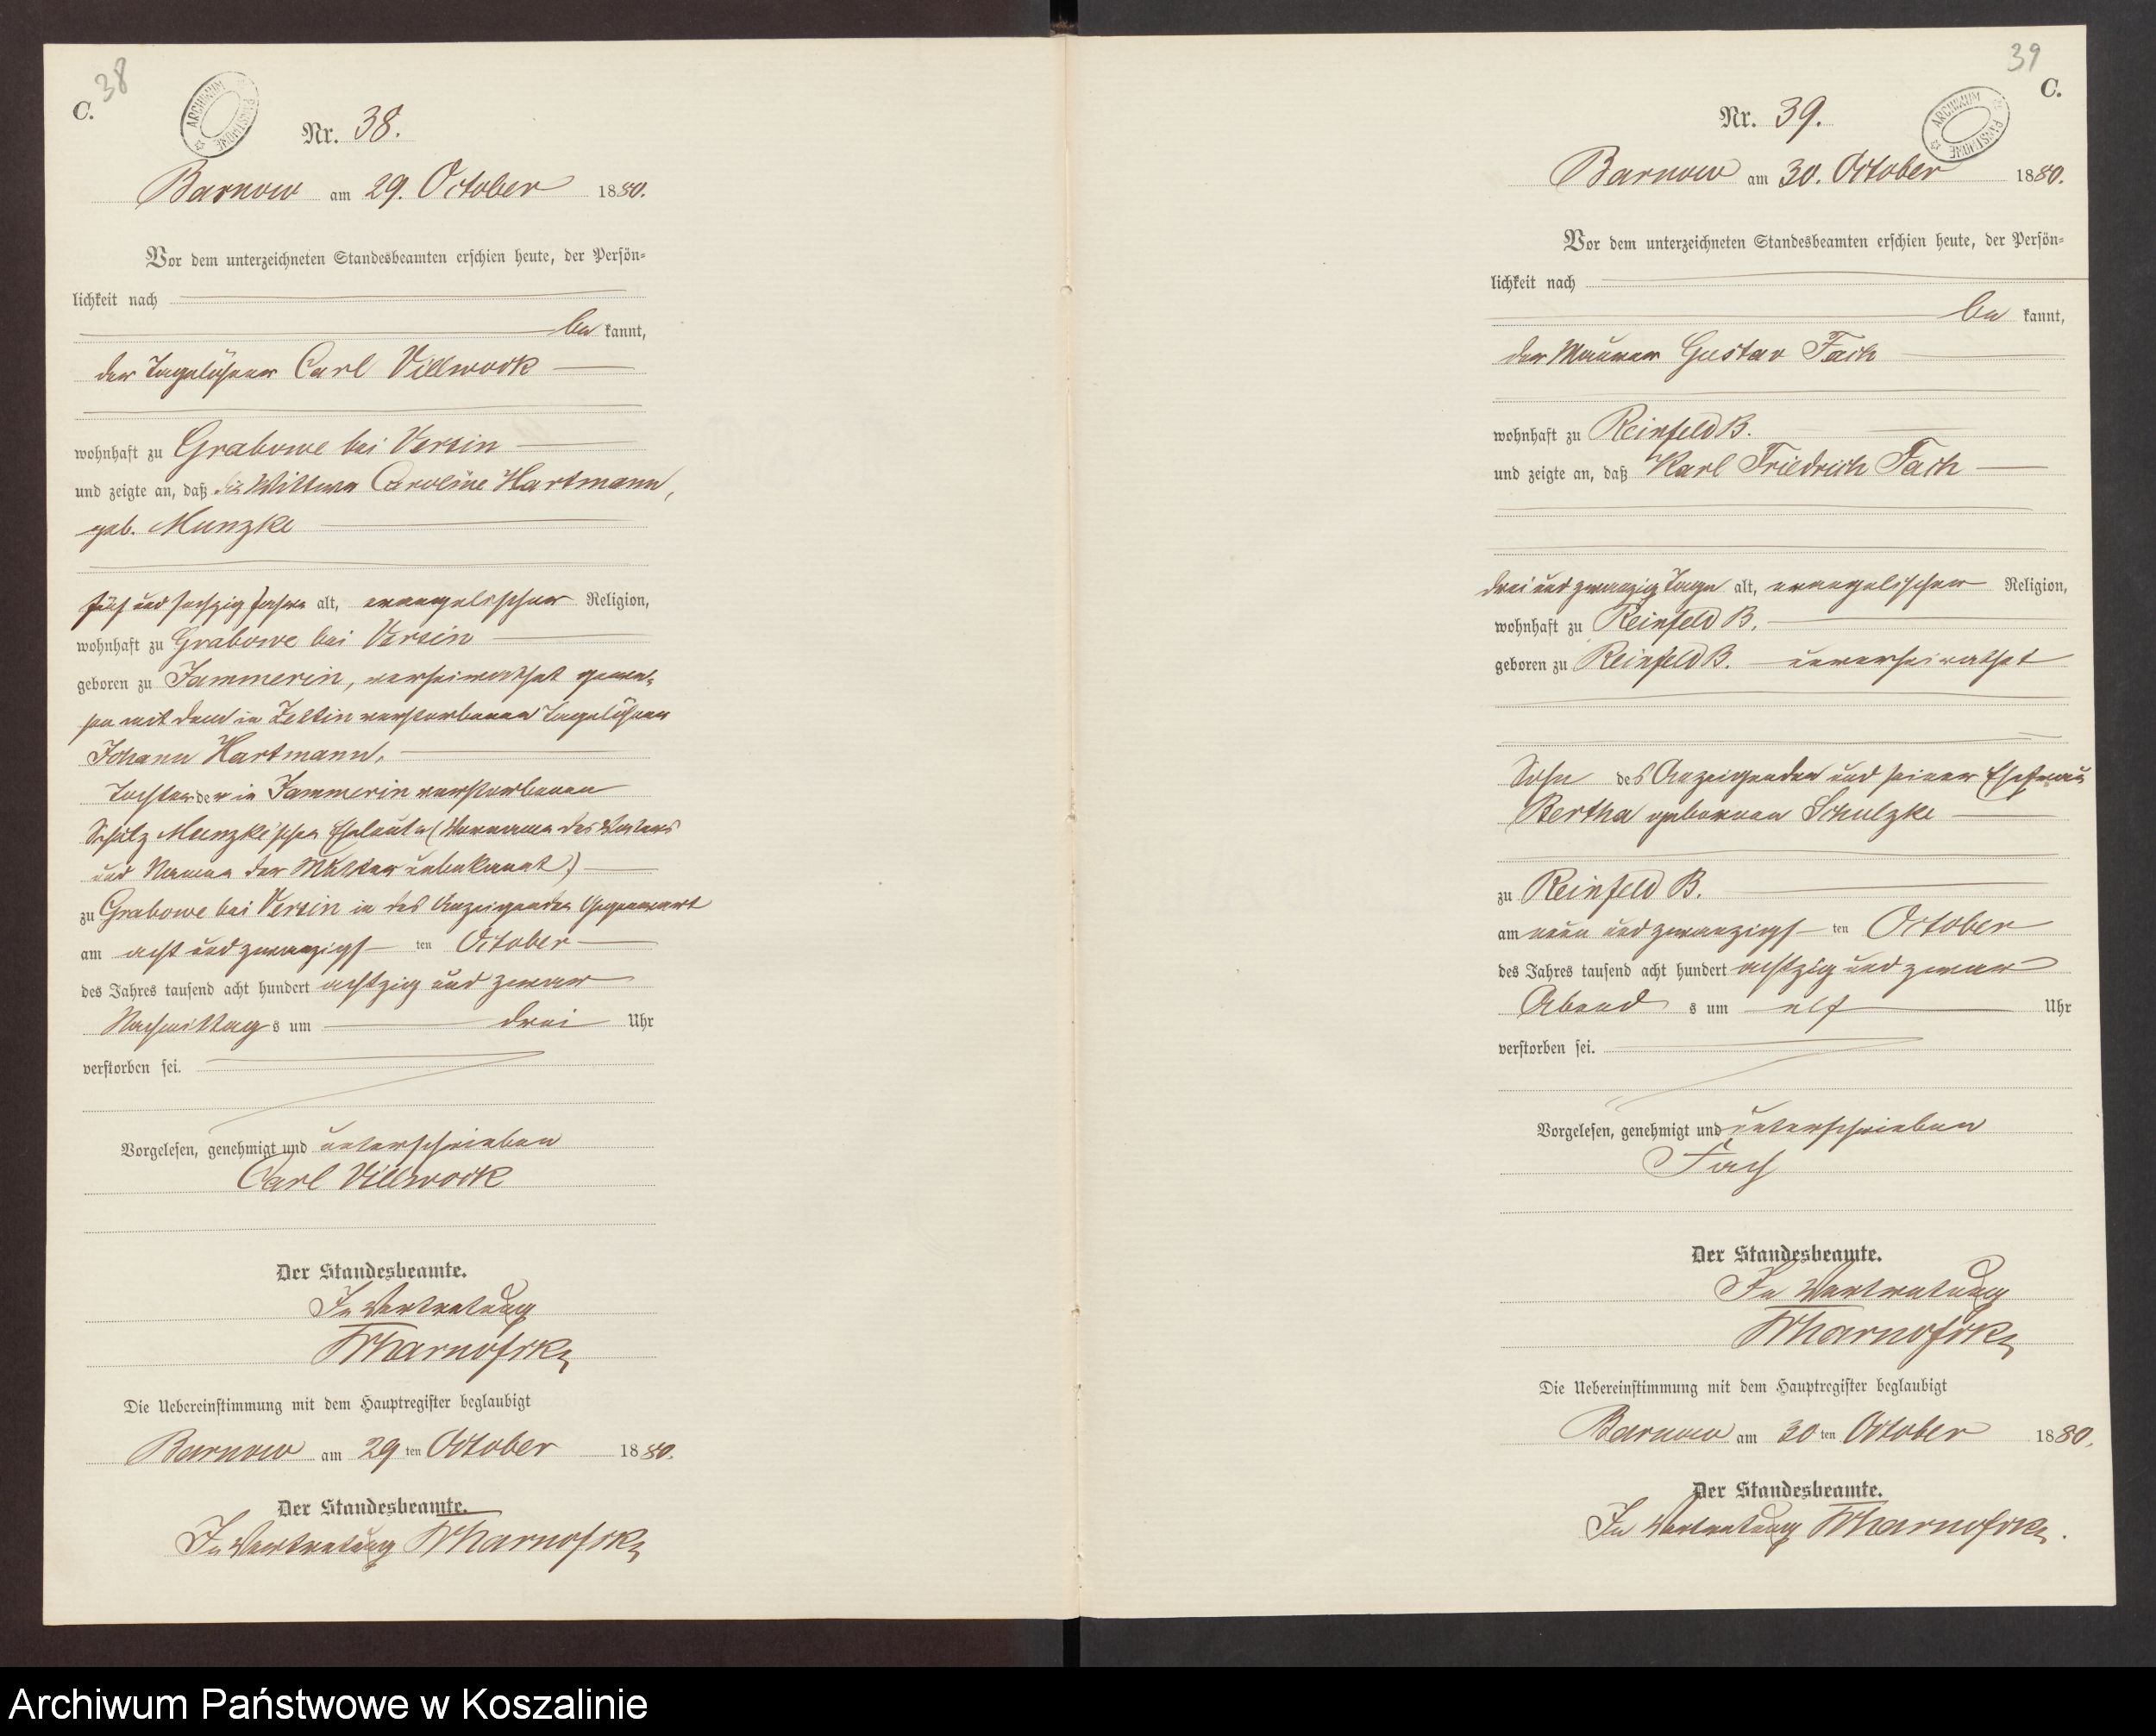 38
C.
ARCHIWUM PAŃSTWOWE
Nr. 38.
Barnow am 29. October 1880.
Vor dem unterzeichneten Standesbeamten erschien heute, der Persön=
lichkeit nach
be kannt,
der Tagelöhner Carl Villwock
wohnhaft zu Grabowe bei Versin
und zeigte an, daß die Wittwe Caroline Hartmann,
geb. Munzke
fünf und sechzig Jahre alt, evangelischer Religion,
wohnhaft zu Grabowe bei Versin
geboren zu Jammerin, verheirathet gewe=
sen mit dem in Zettin verstorbenen Tagelöhner
Johann Hartmann,
Tochter der in Jammerin verstorbenen
Schulz Munzke'schen Eheleute (Vorname des Vaters
und Namen der Mutter unbekannt)
zu Grabowe bei Versin in des Anzeigenden Gegenwart
am acht und zwanzigs ten October
des Jahres tausend acht hundert achtzig und zwar
Nachmittag s um drei Uhr
verstorben sei.
Vorgelesen, genehmigt und unterschrieben
Carl Villwock
Der Standesbeamte.
In Vertretung
Die Uebereinstimmung mit dem Hauptregister beglaubigt
Barnow am 29 ten October 1880.
Der Standesbeamte.
In Vertretung
39
C.
ARCHIWUM PAŃSTWOWE
Nr. 39.
Barnow am 30. October 1880.
Vor dem unterzeichneten Standesbeamten erschien heute, der Persön=
lichkeit nach
be kannt,
der Maurer Gustav Fach
wohnhaft zu Reinfeld B.
und zeigte an, daß Karl Friedrich Fach
drei und zwanzig Tage alt, evangelischer Religion,
wohnhaft zu Reinfeld B.
geboren zu Reinfeld B. unverheirathet
Sohn des Anzeigenden und seiner Ehefrau
Bertha geborenen Schulzke
zu Reinfeld B.
am neun und zwanzigs ten October
des Jahres tausend acht hundert achtzig und zwar
Abend s um elf Uhr
verstorben sei.
Vorgelesen, genehmigt und unterschrieben
Fach
Der Standesbeamte.
In Vertretung
Die Uebereinstimmung mit dem Hauptregister beglaubigt
Barnow am 30 ten October 1880.
Der Standesbeamte.
In Vertretung
Archiwum Państwowe w Koszalinie